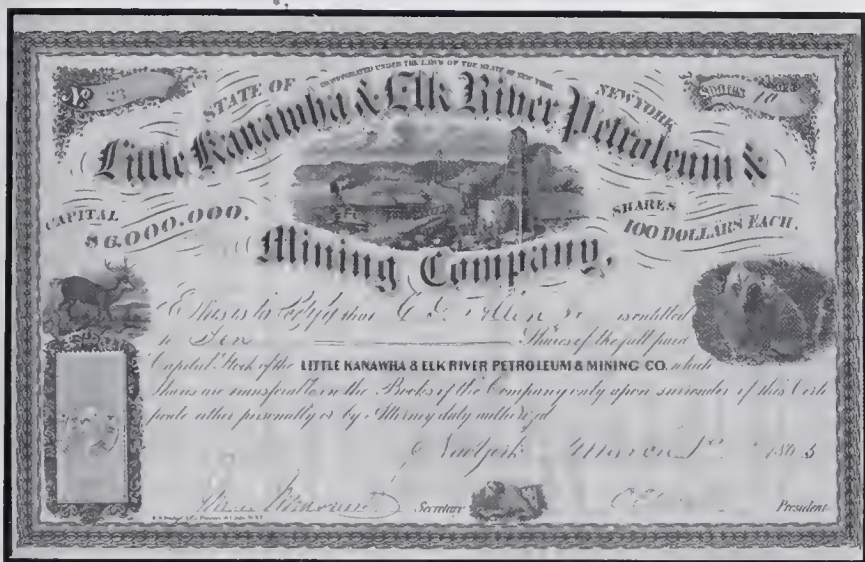 INCORPORATED UNDER THE LAWS OF THE STATE OF NEW YORK.
No 23
STATE OF NEW YORK
Shares 10
Little Kanawha & Elk River Petroleum &
CAPITAL
$6.000.000.
SHARES
100 DOLLARS EACH.
Mining Company.
This is to Certify that is entitled
to Ten Shares of the full paid
Capital Stock of the LITTLE KANAWHA & ELK RIVER PETROLEUM & MINING CO. which
Shares are transferable on the Books of the Company only upon surrender of this Certi
ficate either personally or by Attorney duly authorized
New York March 186
Secretary President